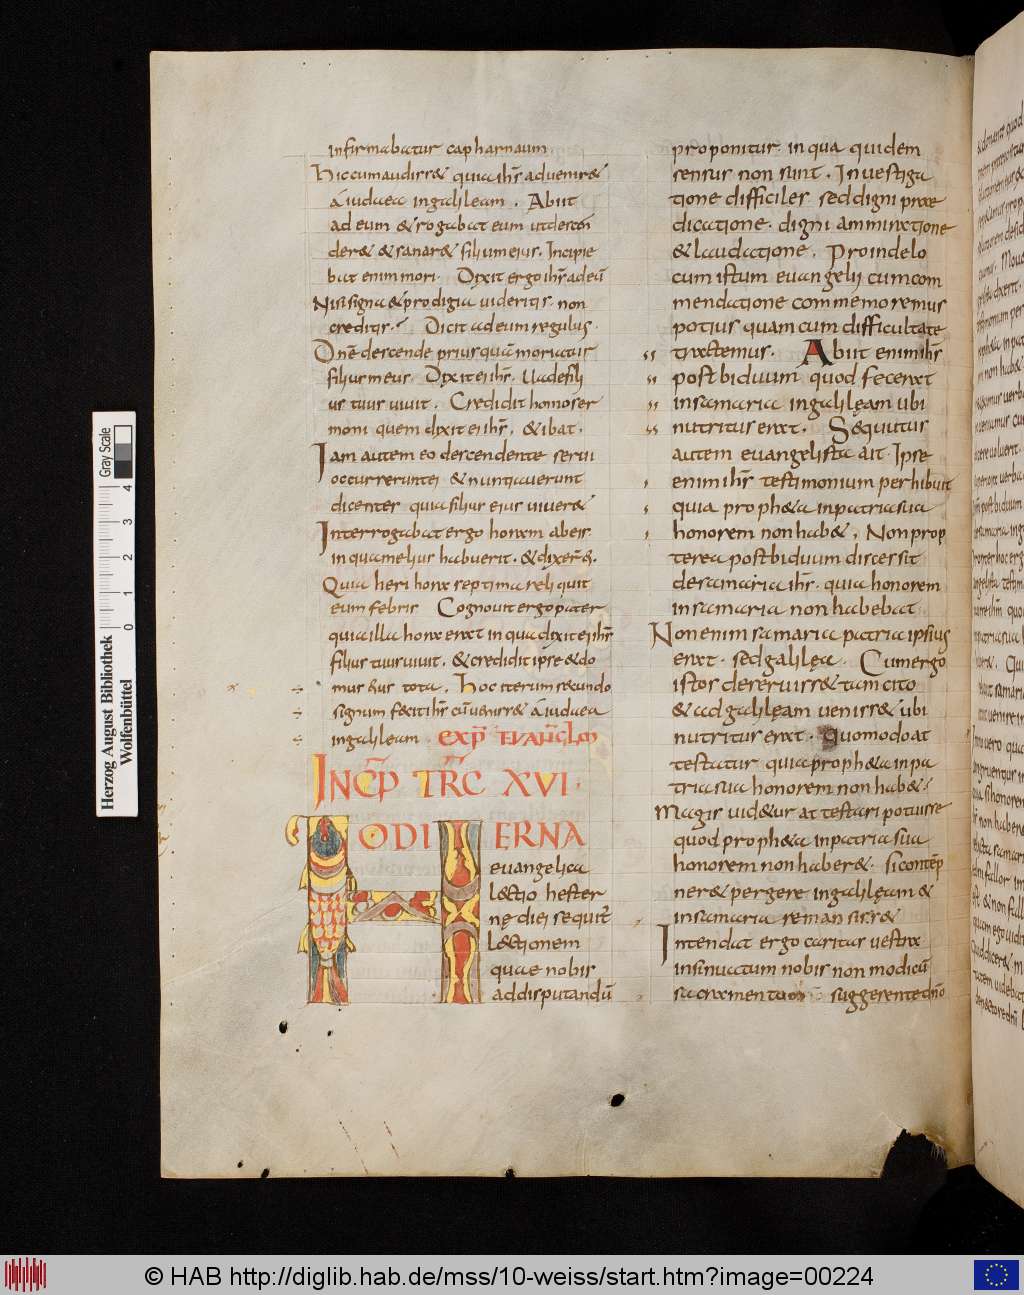 infirmabatur capharnaum
hiccumaudiss& quia ihs aduenir&
a iudaea ingalileam . Abiit
ad eum & rogabat eum utdescen
der& & sanar& filiumeius. Incipie
bat enim mori. Dixit ergo ihs adeū
Nisi signa & prodigia uideritis. non
creditis. Dicit adeum regulus.
Dnē descende priusquā moriatur
filius meus. Dixit ei ihs. Uade fili
us tuus uiuit. Credidit homo ser
moni quem dixit ei ihs. & ibat.
Iam autem eo descendente serui
occurrerunt ei & nuntiauerunt
dicentes quia filius eius uiuer&
Interrogabat ergo horam ab eis
in qua melius habuerit. & dixer̄ ei.
Quia heri hora septima reliquit
eum febris Cognouit ergo pater
quia illa hora erat in qua dixit ei ihs
filius tuus uiuit. & credidit ipse & do
mus eius tota. hoc iterum secundo
signum fecit ihs cū ueniss& a iudaea
ingalileam expl euangliom
INCP TRC XVI.
HODI ERNA
euangelica
lectio hester
nę diei sequit̄
lectionem
quae nobis
ad disputandū
proponitur. in qua quidem
sensus non sunt . Inuestiga
tione difficiles sed digni prae
dicatione. digni ammiratione
& laudatione . Proinde lo
cum istum euangelii cum com
mendatione commemoremus
potius quam cum difficultate
tractemus. Abiit enim ihs
post biduum quod fecerat
in samaria in galilęam ubi
nutritus erat. Sequutus
autem euangelista ait. Ipse
enim ihs testimonium perhibuit
quia proph&a in patria sua
honorem non hab& . Non prop
terea post biduum discessit
de samaria ihs. quia honorem
in samaria non habebat
Non enim samaria patria ipsius
erat. sed galilęa . Cum ergo
istos deseruiss& tam cito
& ad galilęam ueniss& ubi
nutritus erat. quomodo at
testatur quia proph&a in pa
tria sua honorem non hab&
Magis uid&ur at testari potuisse
quod proph&a in patria sua
honorem non haber&. si contēp
ner& pergere in galilęam &
in samaria remansiss&
Intendat ergo caritas uestra
insinuatum nobis non modicū
sacramentum. suggerente dn̄o
Herzog August Bibliothek
Wolfenbüttel
0 1 2 3 4
Gray Scale
© HAB http://diglib.hab.de/mss/10-weiss/start.htm?image=00224